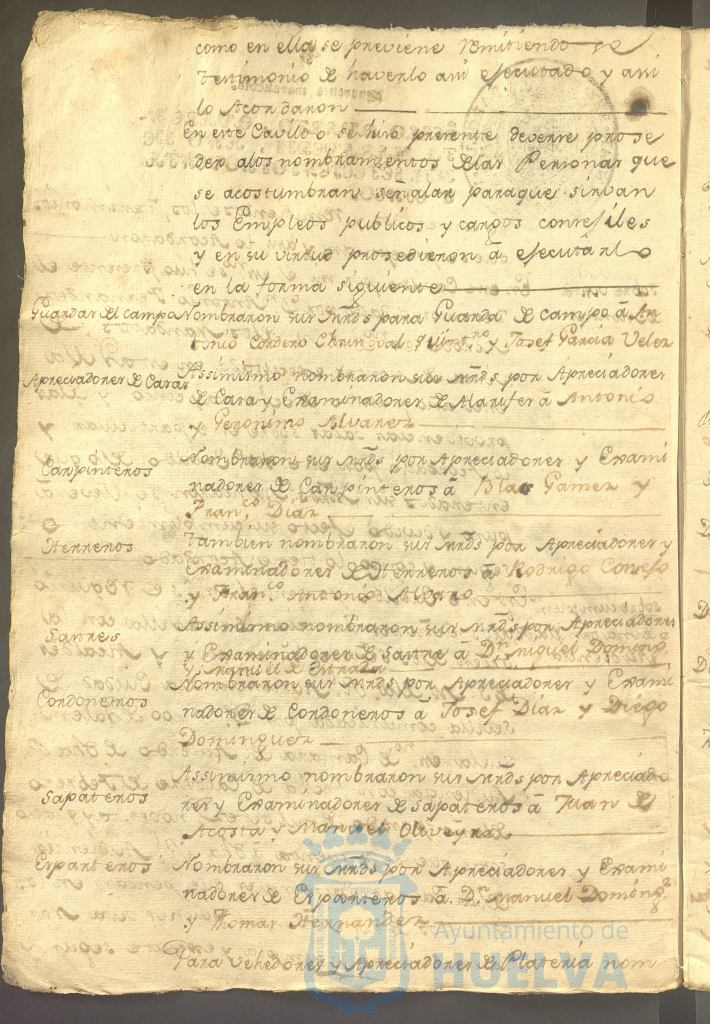 como en ella se previene remitiendo se
testimonio de haverlo assi efecutado y assi
lo Acordaron
En este Cavildo se hiso presente deverse prose
der alos nombramientos de las Personas que
se acostumbran señalar paraque sirvan
los Empleos publicos y cargos consejiles
y en su virtud prosedieron â efecutarlo
en la forma siguiente
Guardas del campo Nombraron sus mrds para Guarda de campo â An
tonio Cordero Christoval y Josef Garcia Velez
Apreciadores de Casas Assimismo nombraron sus mrds por Apreciadores
de Casa y Examinadores de Alarifes â Antonio
y Geronimo Alvarez
Carpinteros Nombraron sus mrds por Apreciadores y Exami
nadores de Carpinteros â Blas Gamez y
Franco. Diaz
Herreros Tambien nombraron sus mrds por Apreciadores y
Examinadores de Herreros â Rodrigo Consejo
y Franco. Antonio
Sastres Assimismo nombraron sus mrds por Apreciadores
y Examinadores de Sastre â Dn. Miguel Doming.
y Manuel de Estrada
Cordoneros Nombraron sus mrds por Apreciadores y Exami
nadores de Cordoneros â Josef Diaz y Diego
Dominguez
Sapateros Assimismo nombraron sus mrds por Apreciado
res y Examinadores de Sapateros â Juan de
Acosta y Manuel Oliveyra
Esparteros Nombraron sus mrds por Apreciadores y Exami
nadores de Esparteros â Dn. Manuel Doming.
y Thomas Hernandez
Para vehedores y Apreciadores de Plateria nom
Ayuntamiento de
HUELVA